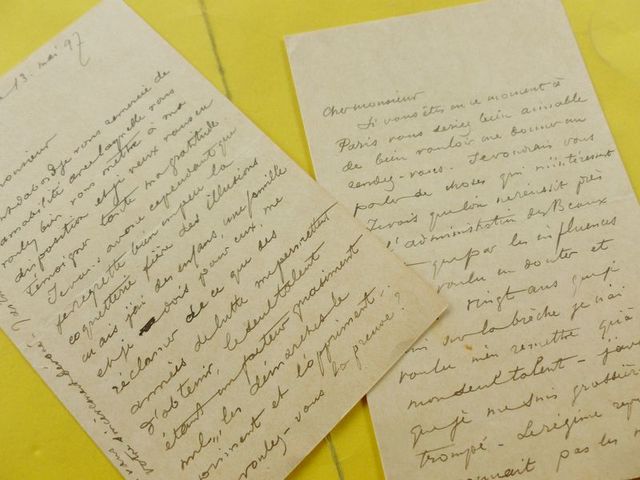 13. mai 97
onsieur
d'abord je vous remercie de
amabilité avec laquelle vous
voulez bien vous mettre à ma
disposition et je veux vous en
témoigner toute ma gratitude.
J'avais, avoue cependant que
je regrette bien un peu la
coquetterie fière des illusions
mais j'ai des enfants, une famille
et je dois pour eux, me
réclamer de ce que des
années de lutte me permettent
d'obtenir, le seul talent
étant un facteur quasiment
nul, les démarches le
priment et l'oppriment.
voulez-vous la preuve?
Cher monsieur
Si vous êtes en ce moment à
Paris vous seriez bien aimable
de bien vouloir me donner un
rendez-vous. Je voudrais vous
parler de choses qui m'intéressent
Je vais que l'on ne réussit près
l'administration des Beaux
que par les influences
voulu en douter et
vingt ans que je
suis sur la brèche je n'ai
voulu m'en remettre qu'à
mon seul talent - j'avoue
que je me suis grossière
trompé. Le régime
pas les